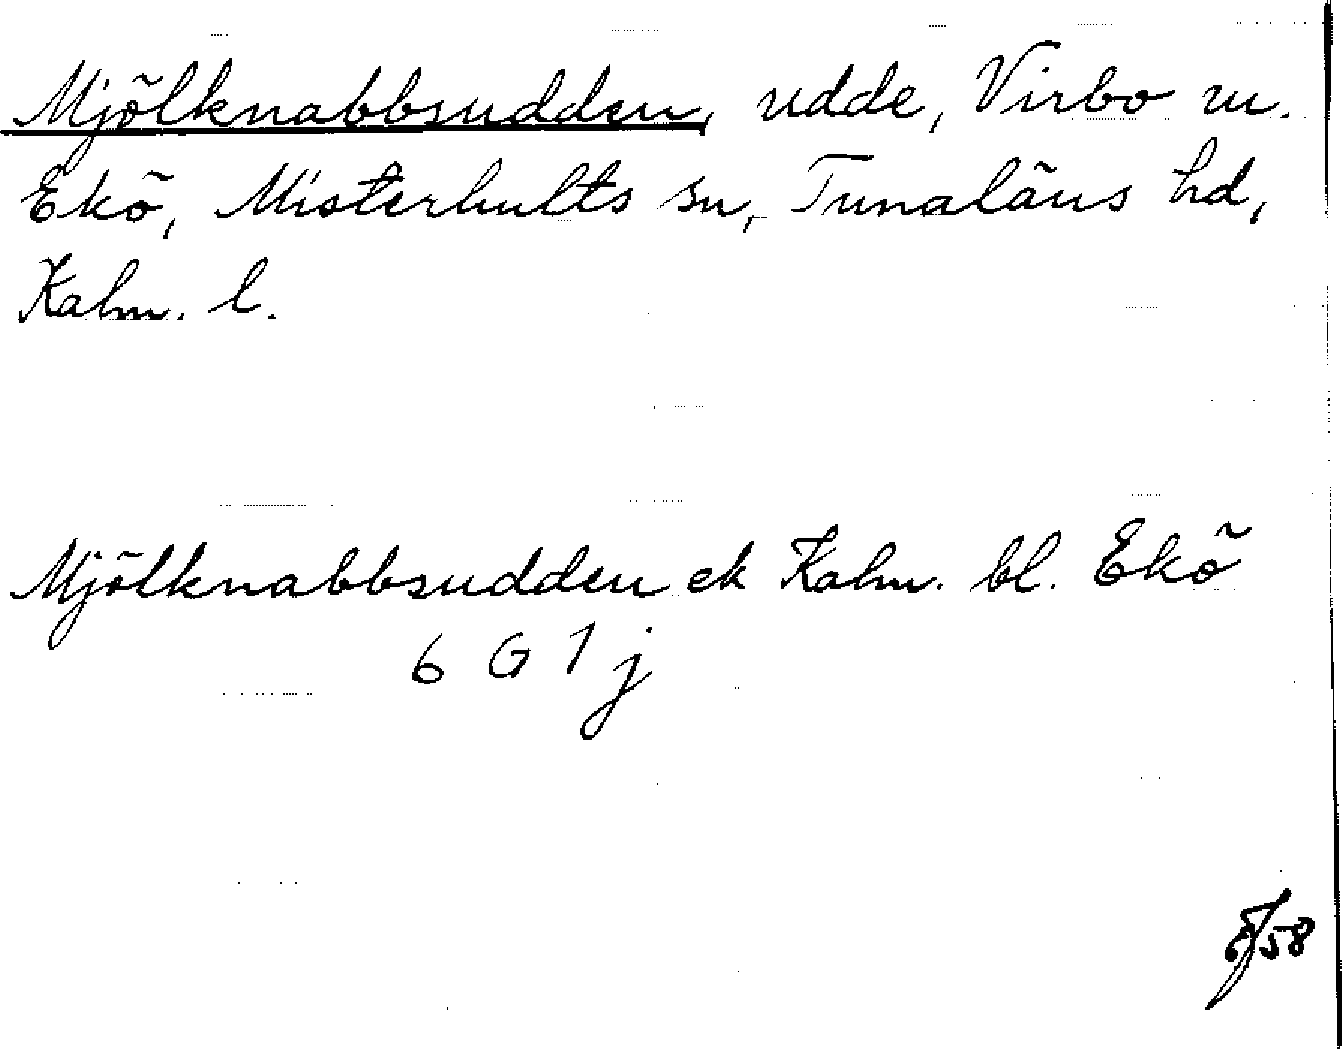 Mjölknabbsudden, udde, Virbo m.
Ekö, Misterhults sn, Tunaläns hd,
Kalm. l.
Mjölknabbsudden ek Kalm. bl. Ekö
6 G 1 j
58